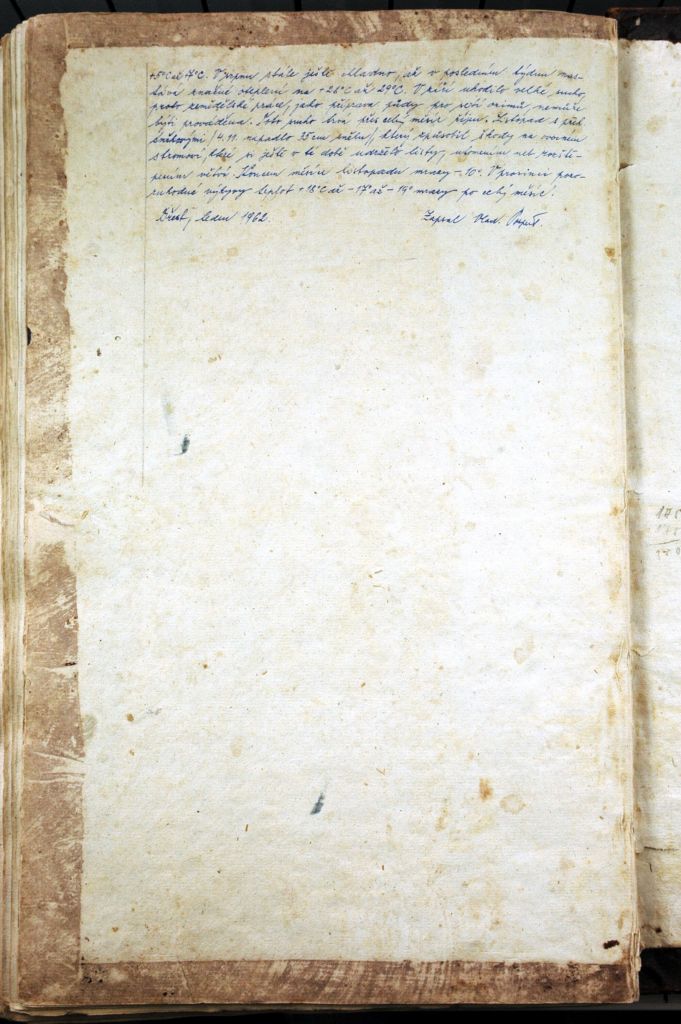 +5°C až 7°C. V srpnu stále ještě chladno, až v posledním týdnu nas-
tává značné oteplení na +26°C až 29°C. V září uhodilo velké sucho,
proto zemědělské práce, jako příprava půdy pro setí ozimů nemůže
býti prováděna. Toto sucho trvá přes celý měsíc říjen. Listopad s
sněhovými /4.11. napadlo 35 cm sněhu/, který způsobil škody na ovocném
stromoví, které si ještě v té době udrželo listy, ulomením neb rozští-
pením větví. Koncem měsíce listopadu mrazy -10°. V prosinci pozo-
ruhodné výkyvy teplot +18°C až -17° až -19° mrazy po celý měsíc.
leden 1962. Zapsal Vlad.
170